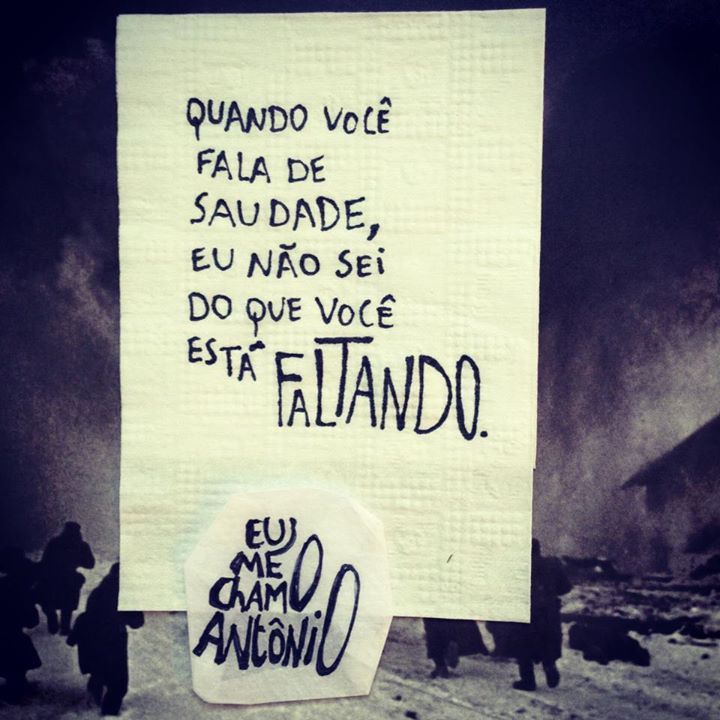 QUANDO VOCÊ
FALA DE
SAUDADE,
EU NÃO SEI
DO QUE VOCÊ
ESTÁ FALTANDO.
EU
ME
CHAMO
ANTÔNIO